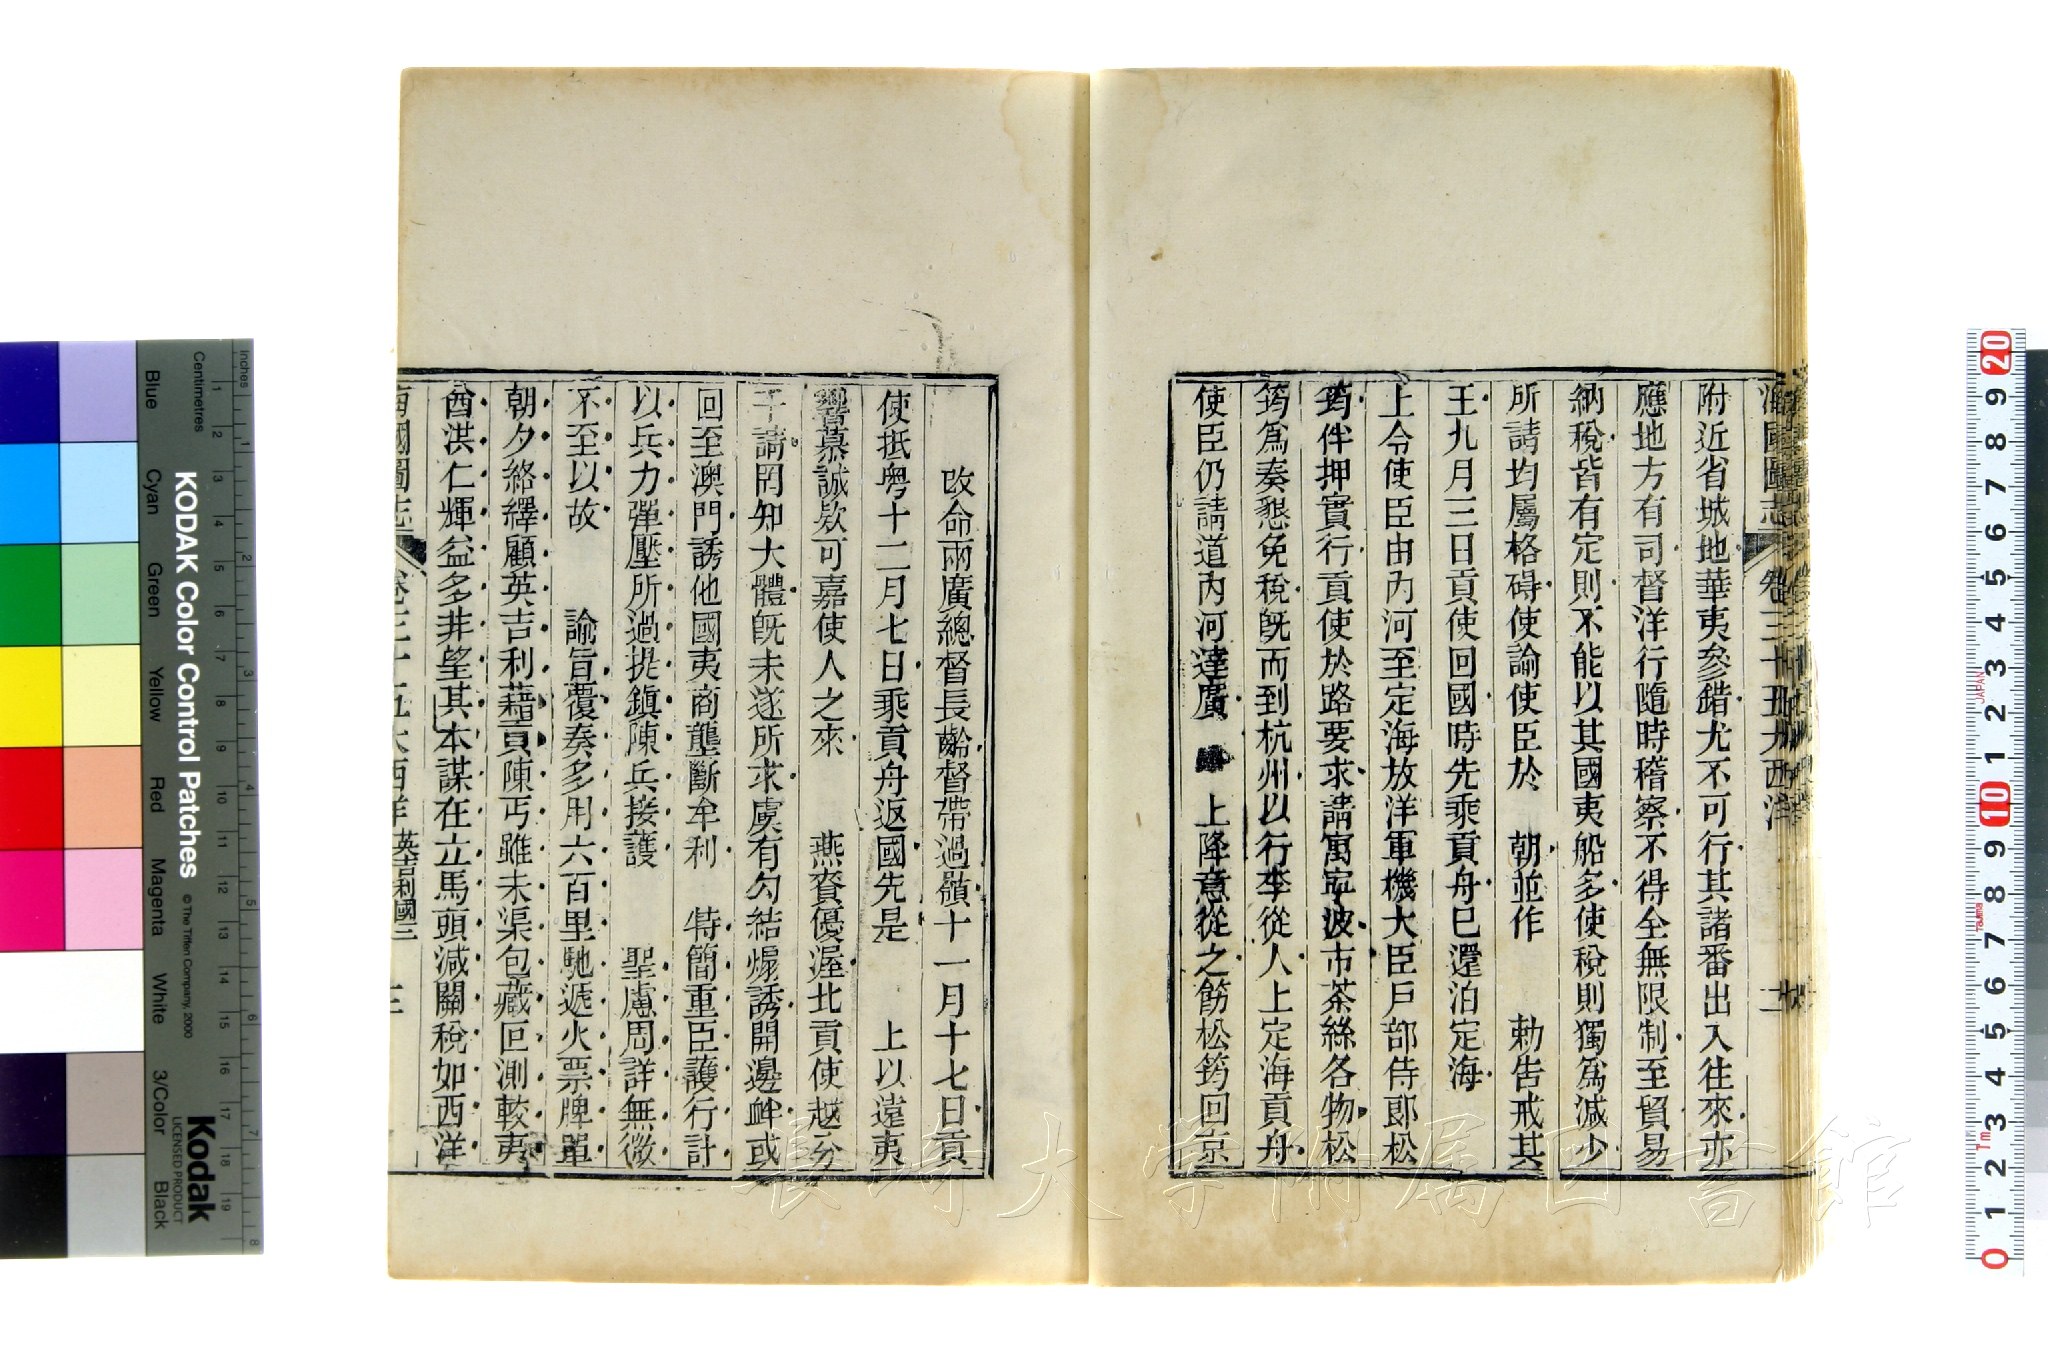 海國圖志 卷三十五大西洋
附近省城地華夷參錯尤不可行其諸番出入往來亦
應地方有司督洋行隨時稽察不得全無限制至貿易
納稅皆有定則不能以其國夷船多使稅則獨爲減少
所請均屬格碍使諭使臣於 朝並作 勅告戒其
王九月三日貢使回國時先乘貢舟已還泊定海
上令使臣由內河至定海放洋軍機大臣戶部侍郎松
筠伴押實行貢使於路要求請寓寧波市茶絲各物松
筠爲奏懇免稅既而到杭州以行李從人上定海貢舟
使臣仍請道內河達廣 上降意從之筯松筠回京
改命兩廣總督長齡督帶過嶺十一月十七日貢
使抵粵十二月七日乘貢舟返國先是 上以遠夷
嚮慕誠欵可嘉使人之來 燕賚優渥北貢使越分
干請罔知大體既未遂所求虞有勾結煽誘開邊衅或
回至澳門誘他國夷商壟斷牟利 特簡重臣護行計
以兵力彈壓所過提鎮陳兵接護 聖慮周詳無微
不至以故 諭旨覆奏多用六百里馳遞火票牌單
朝夕絡繹顧英吉利藉貢陳丐雖未渠包藏叵測較夷
酋洪仁輝益多非望其本謀在立馬頭減關稅如西洋
海國圖志 卷三十五大西洋 英吉利國三
KODAK Color Control Patches
© The Tiffen Company, 2000
Kodak
LICENSED PRODUCT
Inches
Centimetres
Blue Cyan Green Yellow Red Magenta White 3/Color Black
1 2 3 4 5 6 7 8 9 10 11 12 13 14 15 16 17 18 19
1 2 3 4 5 6 7 8
20 9 8 7 6 5 4 3 2 1 10 9 8 7 6 5 4 3 2 1 0
JAPAN
長崎大学附属図書館